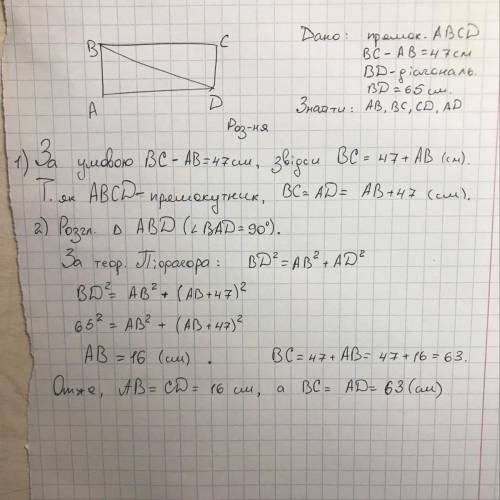 B C
A D
Дано: прямок. ABCD
BC - AB = 47 см
BD - діагональ.
BD = 65 см.
Знайти: AB, BC, CD, AD
Роз-ня
1) За умовою BC - AB = 47 см, звідси BC = 47 + AB (см).
Т. як ABCD - прямокутник, BC = AD = AB + 47 (см).
2) Розгл. Δ ABD (∠BAD = 90°).
За теор. Піфагора: BD² = AB² + AD²
BD² = AB² + (AB + 47)²
65² = AB² + (AB + 47)²
AB = 16 (см). BC = 47 + AB = 47 + 16 = 63.
Отже, AB = CD = 16 см, а BC = AD = 63 (см)